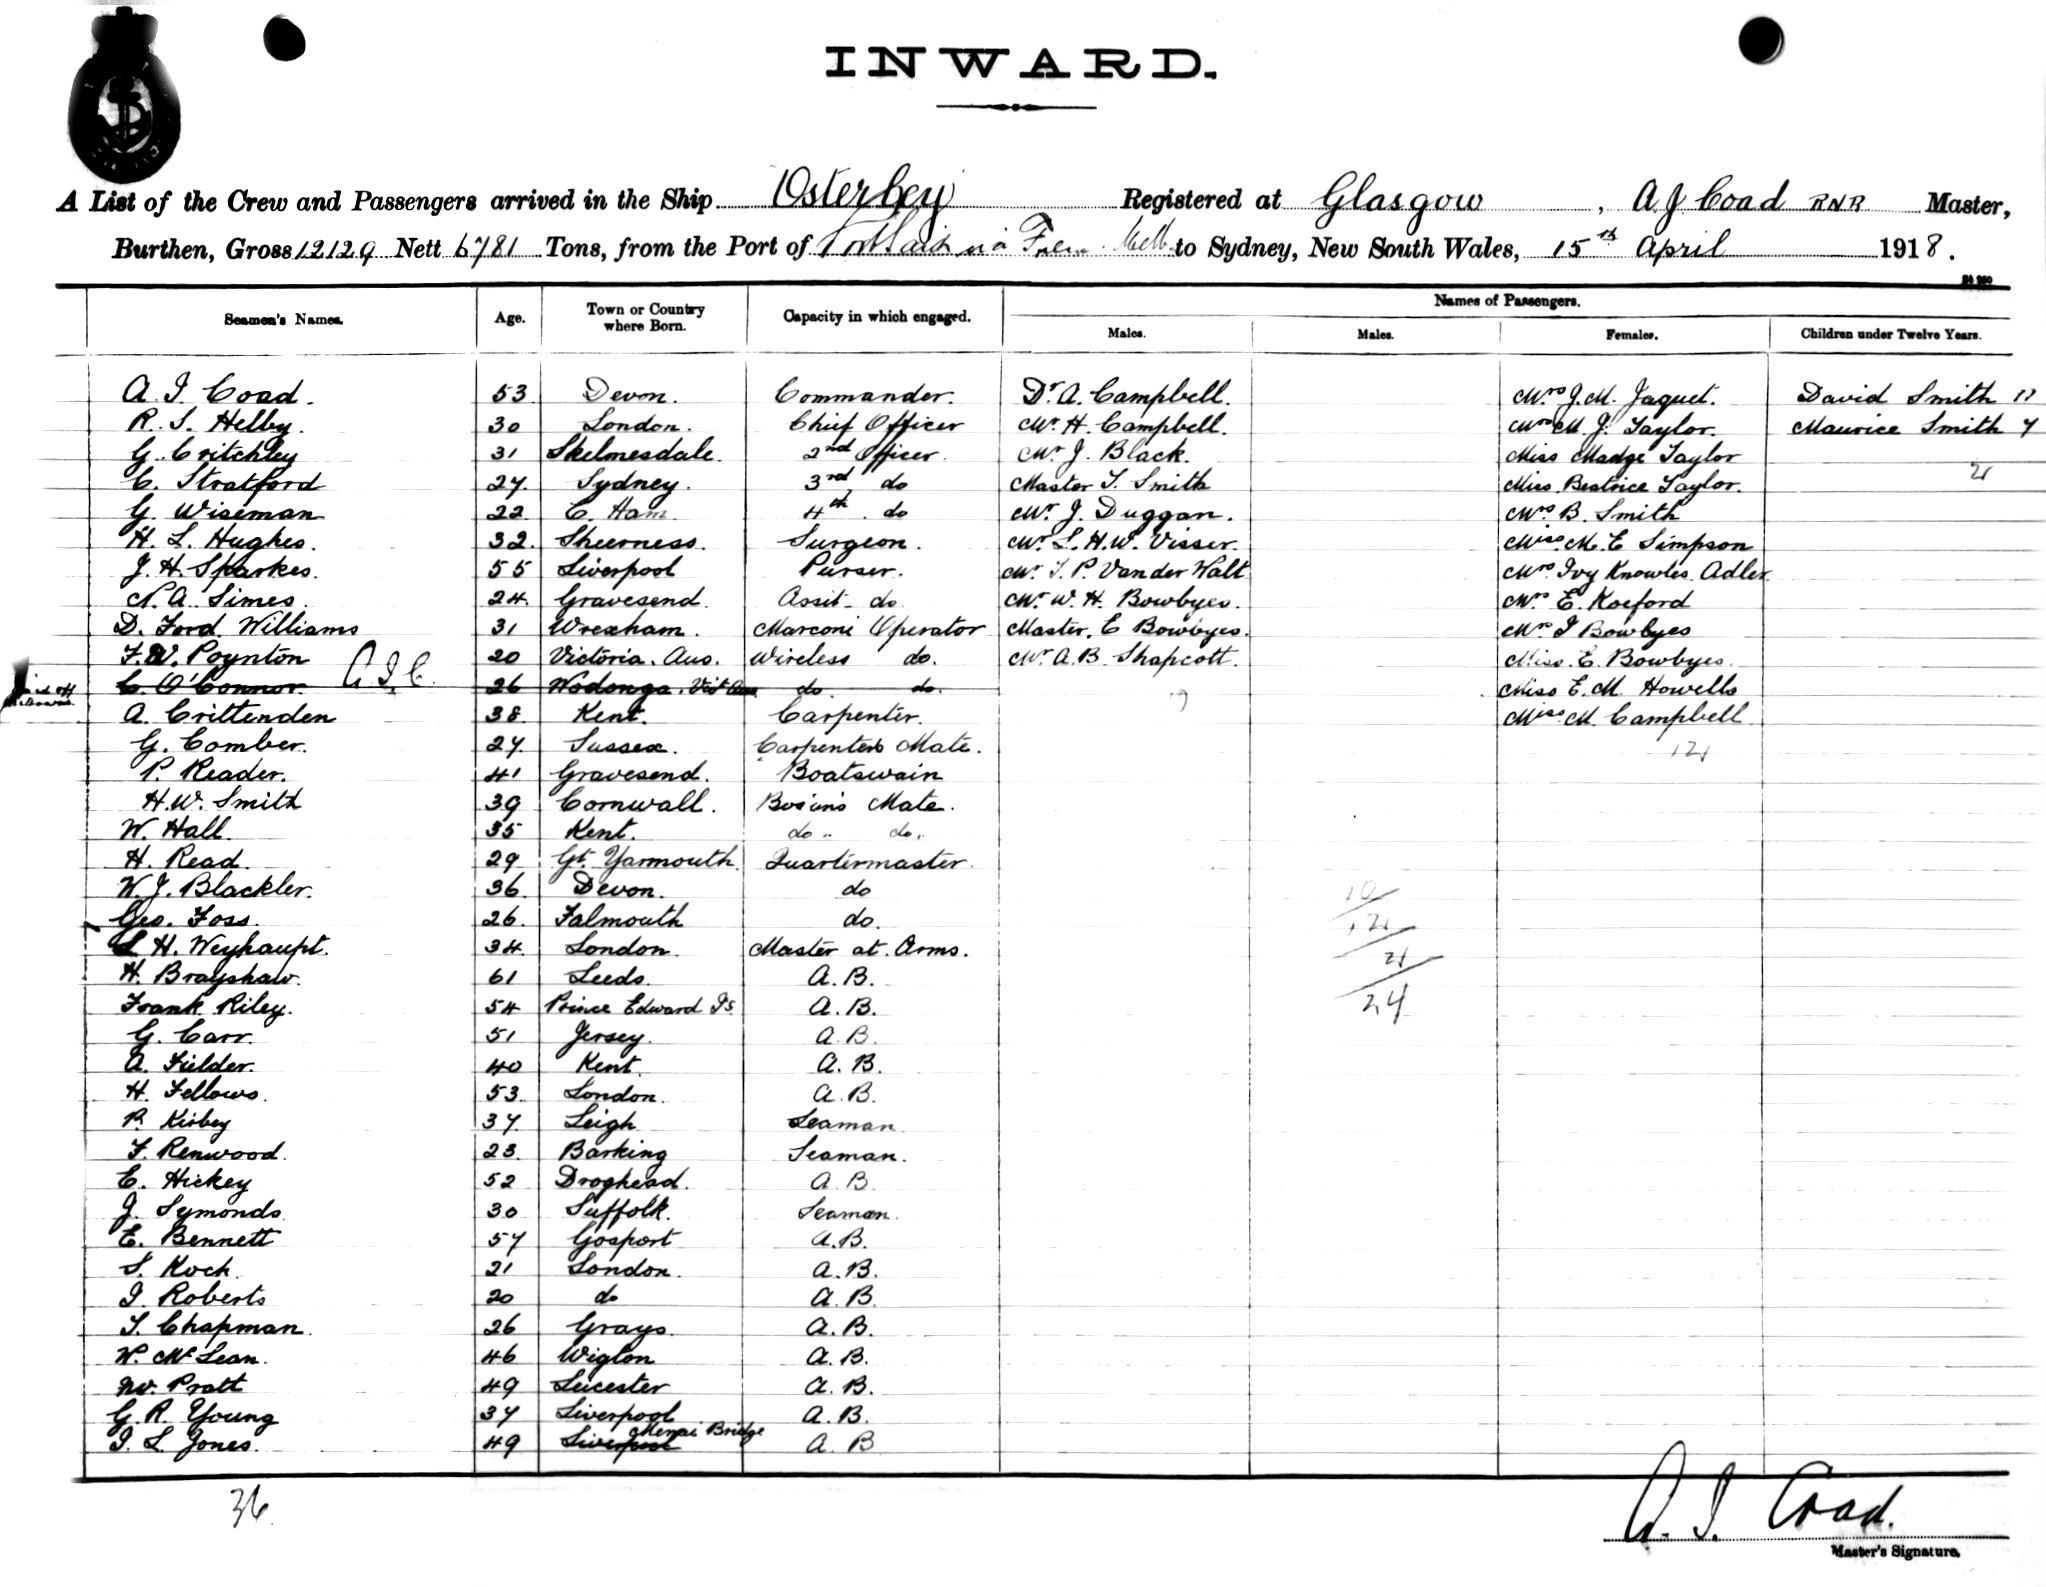 INWARD.
A List of the Crew and Passengers arrived in the Ship Osterley Registered at Glasgow, A J Coad RNR Master,
Burthen, Gross 12129 Nett 6781 Tons, from the Port of Port Said via Frem. Melb to Sydney, New South Wales, 15th April 1918.
Names of Passengers.
Seamen's Names. Age. Town or Country where Born. Capacity in which engaged. Males. Males. Females. Children under Twelve Years.
A. J. Coad. 53 Devon. Commander. Dr. A. Campbell. Mrs J. M. Jaquet. David Smith 11
R. S. Helby. 30 London. Chief Officer Mr. H. Campbell. Mrs M. J. Taylor. Maurice Smith 7
G. Critchley 31 Skelmesdale. 2nd Officer. Mr J. Black. Miss Madge Taylor
C. Stratford 27. Sydney. 3rd do Master T. Smith Miss Beatrice Taylor. 2
G. Wiseman 22 E. Ham. 4th do Mr. J. Duggan. Mrs B. Smith
H. L. Hughes. 32. Sheerness. Surgeon. Mr L. H. W. Visser. Miss M. E Simpson
J. H. Sparkes. 55 Liverpool Purser. Mr. T. P. Van der Walt Mrs Ivy Knowles Adler
N. A. Simes. 24. Gravesend. Assit do Mr W. H. Bowbyes. Mrs E. Koeford
D. Ford Williams 31 Wrexham. Marconi Operator Master. E Bowbyes. Mrs I Bowbyes
F. W. Poynton 20 Victoria. Aus. Wireless do. Mr A. B. Shapcott. Miss. E. Bowbyes.
C. O'Connor. A.J.C. 26 Wodonga. Vict Aus do. do. Miss E. M. Howells
A. Crittenden 38. Kent. Carpenter. Miss M. Campbell
G. Comber. 27. Sussex. Carpenters Mate. 12
P. Reader. 41 Gravesend. Boatswain
H. W. Smith 39 Cornwall. Bosun's Mate.
W. Hall. 35 Kent. do do.
H. Read. 29 Gt. Yarmouth. Quartermaster.
W. J. Blackler. 36 Devon. do 10
Geo. Foss. 26. Falmouth do. 12
L H. Weyhaupt. 34 London. Master at Arms. 2
H. Brayshaw. 61 Leeds. A. B.
Frank Riley. 54 Prince Edward Is. A. B. 24
G. Carr. 51 Jersey. A. B.
A. Fielder. 40 Kent. A. B.
H. Fellows. 53. London. A. B.
P. Kirbey 37 Leigh Seaman
F. Renwood. 23. Barking Seaman.
E. Hickey 52 Droghead. A. B.
J. Symonds 30 Suffolk. Seaman.
E. Bennett 57 Gosport A. B.
S. Koch. 21 London. A. B.
I. Roberts 20 do A. B.
T. Chapman. 26 Grays. A. B.
W. McLean. 46 Wigton A. B.
W. Pratt 49 Leicester A. B.
G. R. Young 37 Liverpool A. B.
Menai Bridge
I. L. Jones. 49 Liverpool A. B
36
A. J. Coad.
Master's Signature.